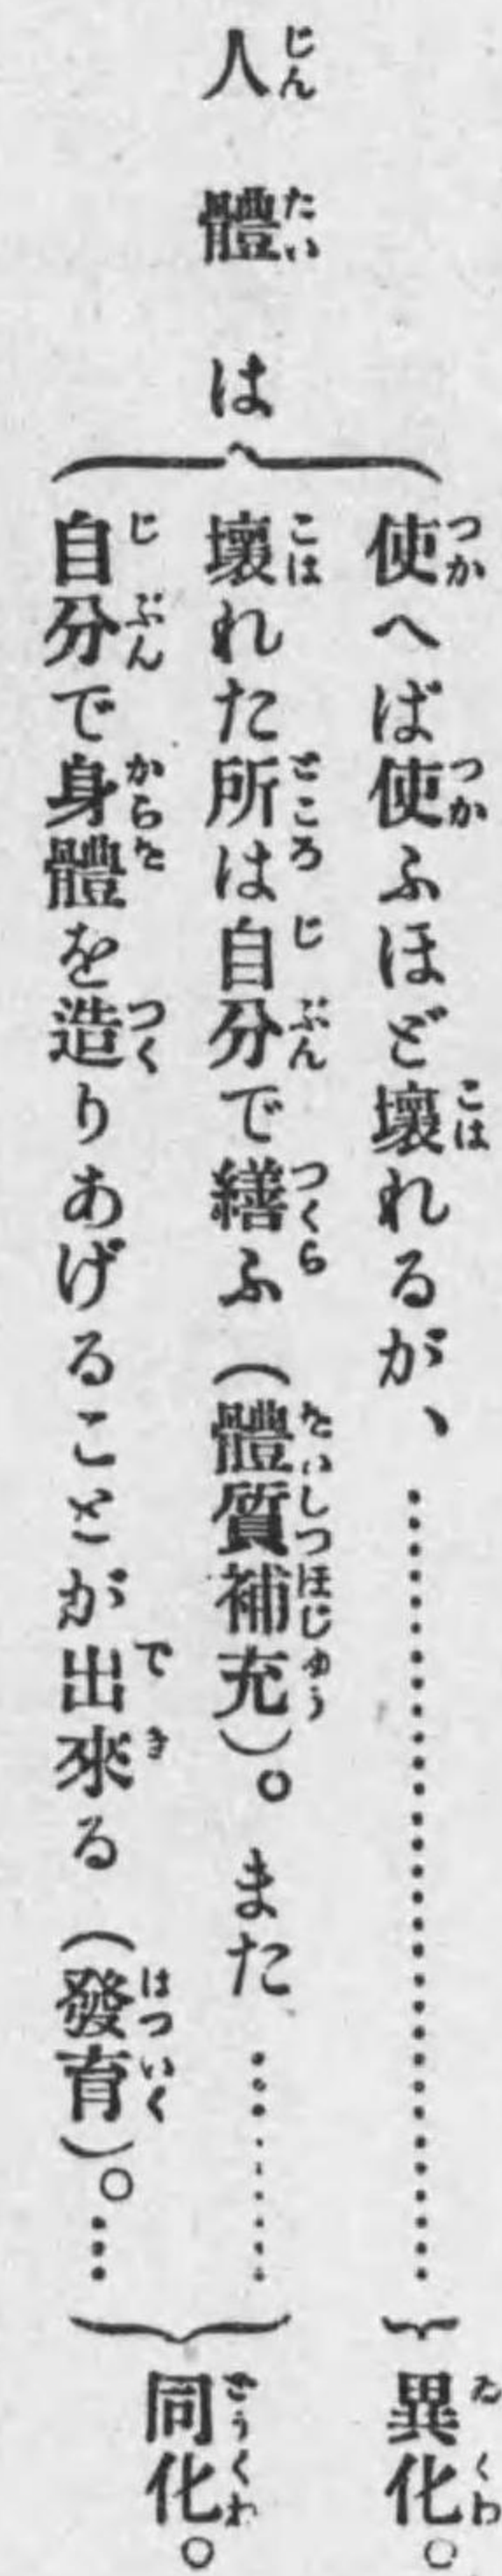 人體は
使へば使ふほど壞れるが、……………………
壞れた所は自分で繕ふ(體質補充)。また………
自分で身體を造りあげることが出來る(發育)。…
異化。
同化。